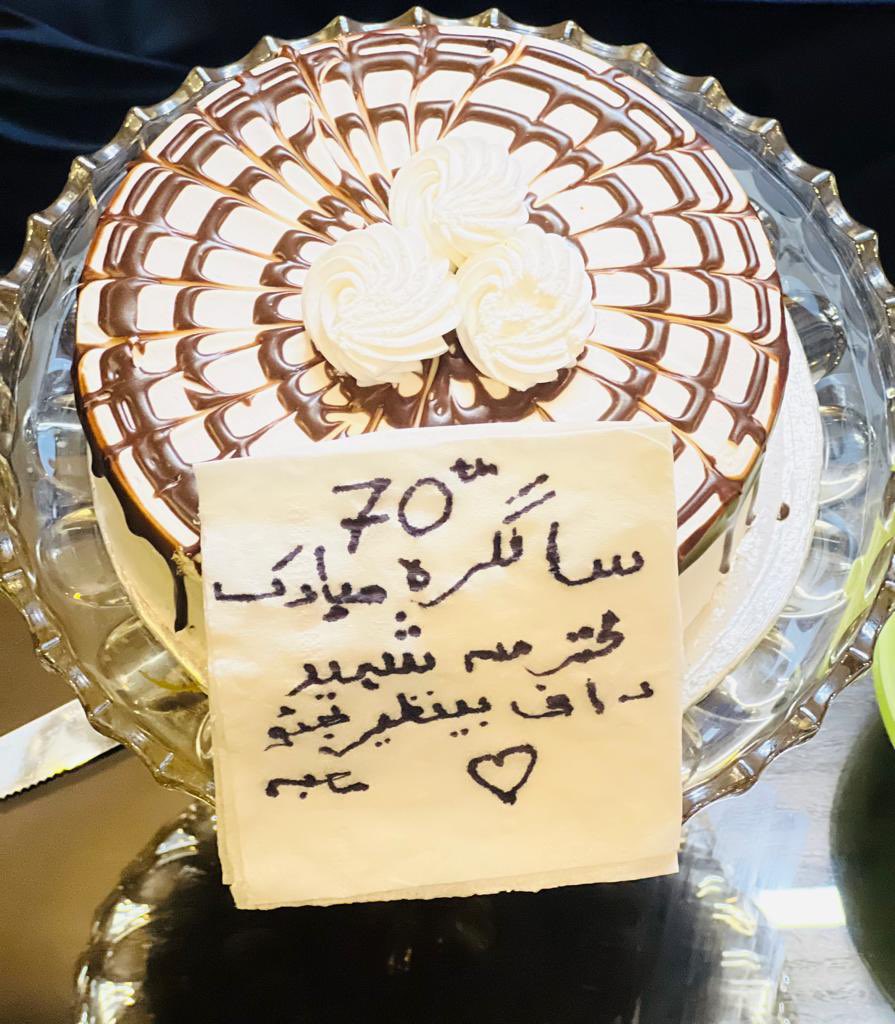 70th
سالگرہ مبارک
محترمہ شہید
رانی بینظیر بھٹو
صاحبہ ♡